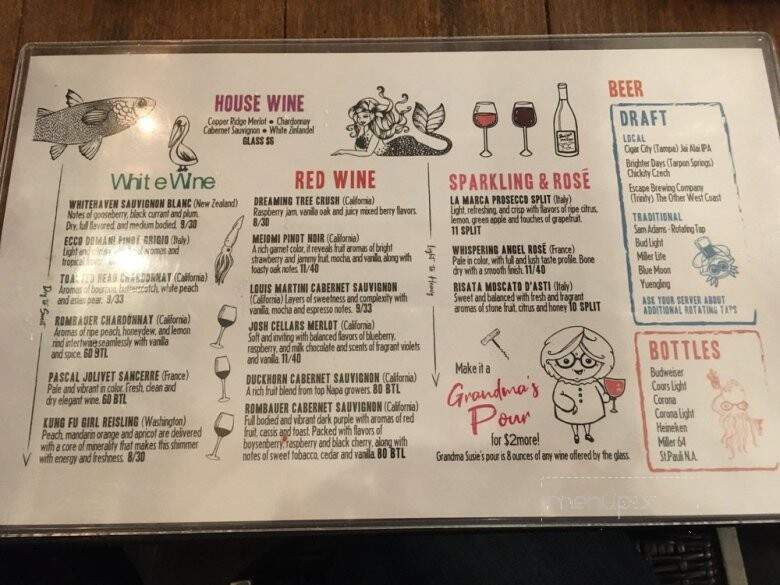 HOUSE WINE
Copper Ridge Merlot • Chardonnay
Cabernet Sauvignon • White Zinfandel
GLASS $6
White Wine
WHITEHAVEN SAUVIGNON BLANC (New Zealand)
Notes of gooseberry, black currant and plum.
Dry, full flavored, and medium bodied. 9/30
ECCO DOMANI PINOT GRIGIO (Italy)
Light and aromas and
tropical
TOASTED HEAD CHARDONNAY (California)
Aromas of bourbon, butterscotch, white peach
and asian pear. 9/33
ROMBAUER CHARDONNAY (California)
Aromas of ripe peach, honeydew, and lemon
rind intertwine seamlessly with vanilla
and spice. 60 BTL
PASCAL JOLIVET SANCERRE (France)
Pale and vibrant in color. Fresh, clean and
dry elegant wine. 60 BTL
KUNG FU GIRL REISLING (Washington)
Peach, mandarin orange and apricot are delivered
with a core of minerality that makes this shimmer
with energy and freshness. 8/30
Dry to Sweet
RED WINE
DREAMING TREE CRUSH (California)
Raspberry jam, vanilla oak and juicy mixed berry flavors.
8/30
MEIOMI PINOT NOIR (California)
A rich garnet color, it reveals fruit aromas of bright
strawberry and jammy fruit, mocha, and vanilla, along with
toasty oak notes. 11/40
LOUIS MARTINI CABERNET SAUVIGNON
(California) Layers of sweetness and complexity with
vanilla, mocha and espresso notes. 9/33
JOSH CELLARS MERLOT (California)
Soft and inviting with balanced flavors of blueberry,
raspberry, and milk chocolate and scents of fragrant violets
and vanilla. 11/40
DUCKHORN CABERNET SAUVIGNON (California)
A rich fruit blend from top Napa growers. 80 BTL
ROMBAUER CABERNET SAUVIGNON (California)
Full bodied and vibrant dark purple with aromas of red
fruit, cassis and toast. Packed with flavors of
boysenberry, raspberry and black cherry, along with
notes of sweet tobacco, cedar and vanilla. 80 BTL
Light to Heavy
SPARKLING & ROSÉ
LA MARCA PROSECCO SPLIT (Italy)
Light, refreshing, and crisp with flavors of ripe citrus,
lemon, green apple and touches of grapefruit.
11 SPLIT
WHISPERING ANGEL ROSÉ (France)
Pale in color, with full and lush taste profile. Bone
dry with a smooth finish. 11/40
RISATA MOSCATO D'ASTI (Italy)
Sweet and balanced with fresh and fragrant
aromas of stone fruit, citrus and honey 10 SPLIT
Make it a
Grandma's
Pour
for $2more!
Grandma Susie's pour is 8 ounces of any wine offered by the glass.
BEER
DRAFT
LOCAL
Cigar City (Tampa) Jai Alai IPA
Brighter Days (Tarpon Springs)
Chickity Czech
Escape Brewing Company
(Trinity) The Other West Coast
TRADITIONAL
Sam Adams - Rotating Tap
Bud Light
Miller Lite
Blue Moon
Yuengling
ASK YOUR SERVER ABOUT
ADDITIONAL ROTATING TAPS
BOTTLES
Budweiser
Coors Light
Corona
Corona Light
Heineken
Miller 64
St.Pauli N.A.
menupix